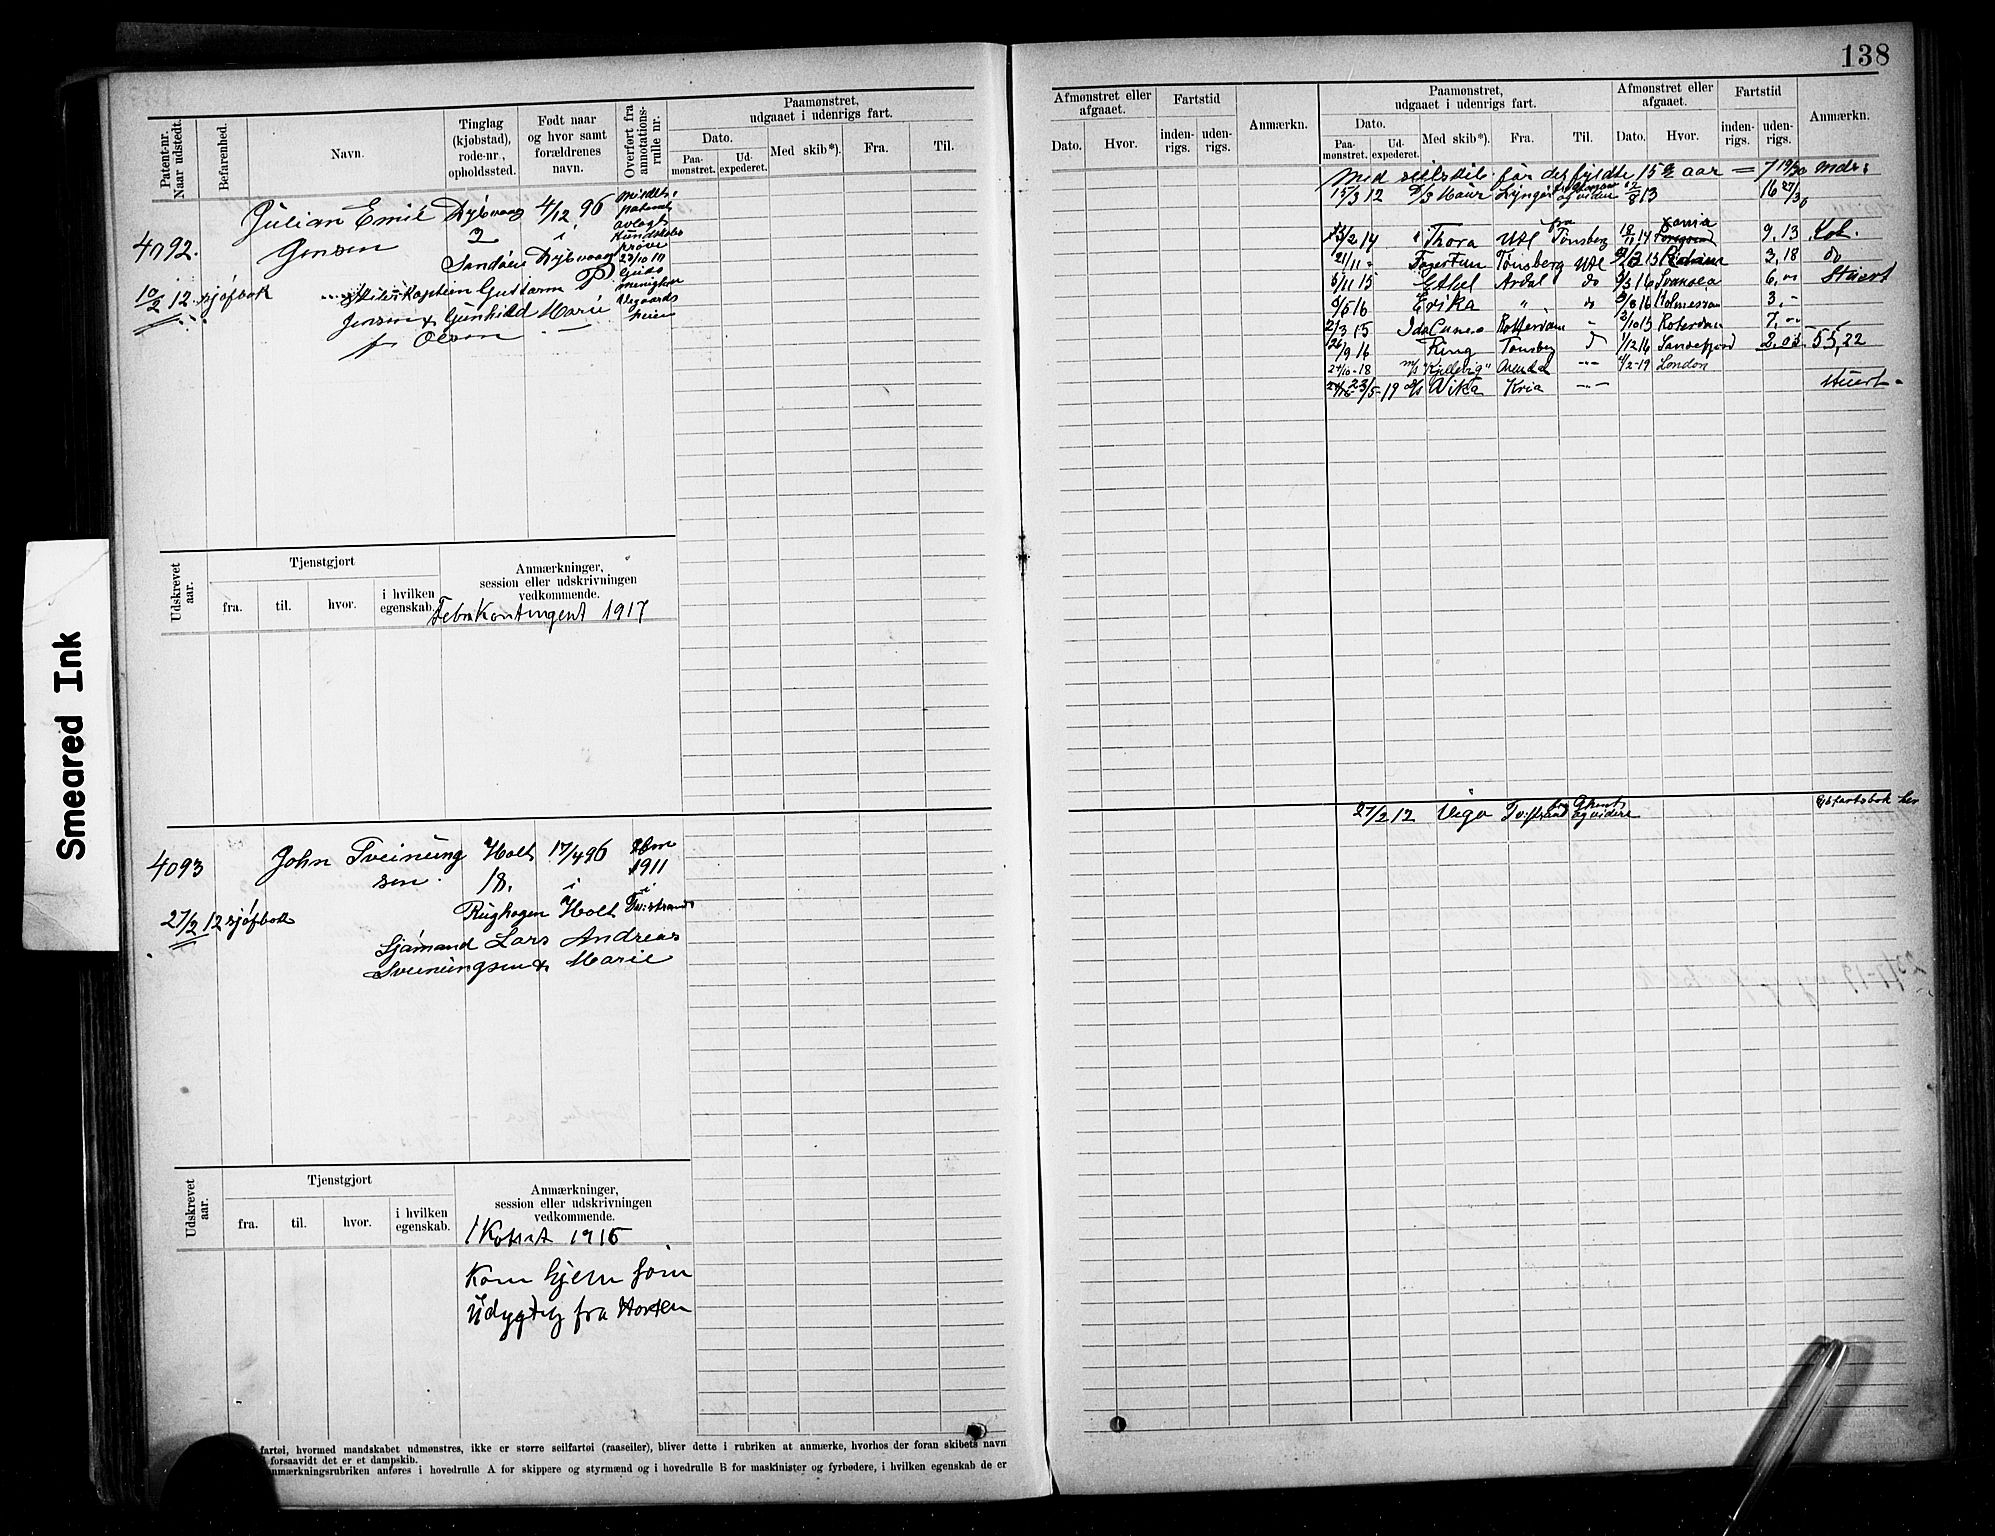 138
Smeared Ink
Patent-nr. Naar udstedt.
Befarenhed.
Navn.
Tinglag (kjøbstad), rode-nr., opholdssted.
Født naar og hvor samt forældrenes navn.
Overført fra annotations-rulle nr.
Paamønstret, udgaaet i udenrigs fart.
Dato.
Paa-mønstret.
Ud-expederet.
Med skib*).
Fra.
Til.
Afmønstret eller afgaaet.
Dato.
Hvor.
Fartstid
inden-rigs.
uden-rigs.
Anmærkn.
Paamønstret, udgaaet i udenrigs fart.
Dato.
Paa-mønstret.
Ud-expederet.
Med skib*).
Fra.
Til.
Afmønstret eller afgaaet.
Dato.
Hvor.
Fartstid
inden-rigs.
uden-rigs.
Anmærkn.
4092.
10/2 12 sjøfbok
Julian Emil
Jensen
Dybvaag
2
Sandøen
4/12 96
i
Dybvaag
avlagt
Kundskabs
prøve
kaptein Gustav P
Jensen & Gunhild Marie
f. Olsen
Med seilskib før det fyldte 15 aar = 7 19/30 mdr:
15/3 12 D/S Maur Lyngør og videre 12/8 13 16 27/30
2 14 Thora Utl fra Tønsberg 9,13 Kok.
21/11 " Tønsberg Utl 3,18 do
5/11 15 Ethel Ardal do 6, Stuert
5 16 Erika " do 3,-
2/3 15 Rotterdam 2/10 15 Roterdam 7,
26/9 16 Ring Tønsberg 1/12 16 Sandefjord 2,03 55,22
27/10-18 m/s Arendal 4/2-19 London
23/5-19 d/s Wika Kria Stuert
Udskrevet aar.
Tjenstgjort
fra.
til.
hvor.
i hvilken egenskab.
Anmærkninger, session eller udskrivningen vedkommende.
Febr Kontingent 1917
4093
27/2 12 sjøfbok
John Sveinung
sen.
Holt
18.
Rughagen
17/4 96
i
Holt
1911
i
Tvistrand
Sjømand Lars Andreas
Sveinungsen & Marie
27/2 12 Vega Tvistrand Ghent og videre
Udskrevet aar.
Tjenstgjort
fra.
til.
hvor.
i hvilken egenskab.
Anmærkninger, session eller udskrivningen vedkommende.
1916
Kom hjem som
Udygtig fra Horten
fartøi, hvormed mandskabet udmønstres, ikke er større seilfartøi (raaseiler), bliver dette i rubriken at anmærke, hvorhos der foran skibets navn
forsaavidt det er et dampskib.
anmærkningsrubriken anføres i hovedrulle A for skippere og styrmænd og i hovedrulle B for maskinister og fyrbødere, i hvilken egenskab de er